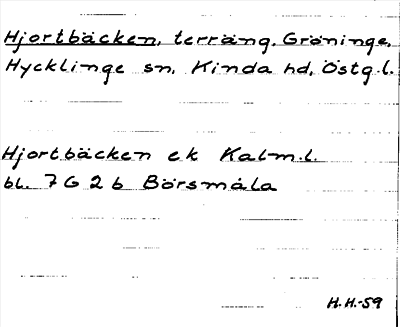 Hjortbäcken, terräng, Gröninge,
Hycklinge sn, Kinda hd, Östg.l.
Hjortbäcken ek Kalm.l.
bl. 7 G 2 b Börsmåla
H.H.-59